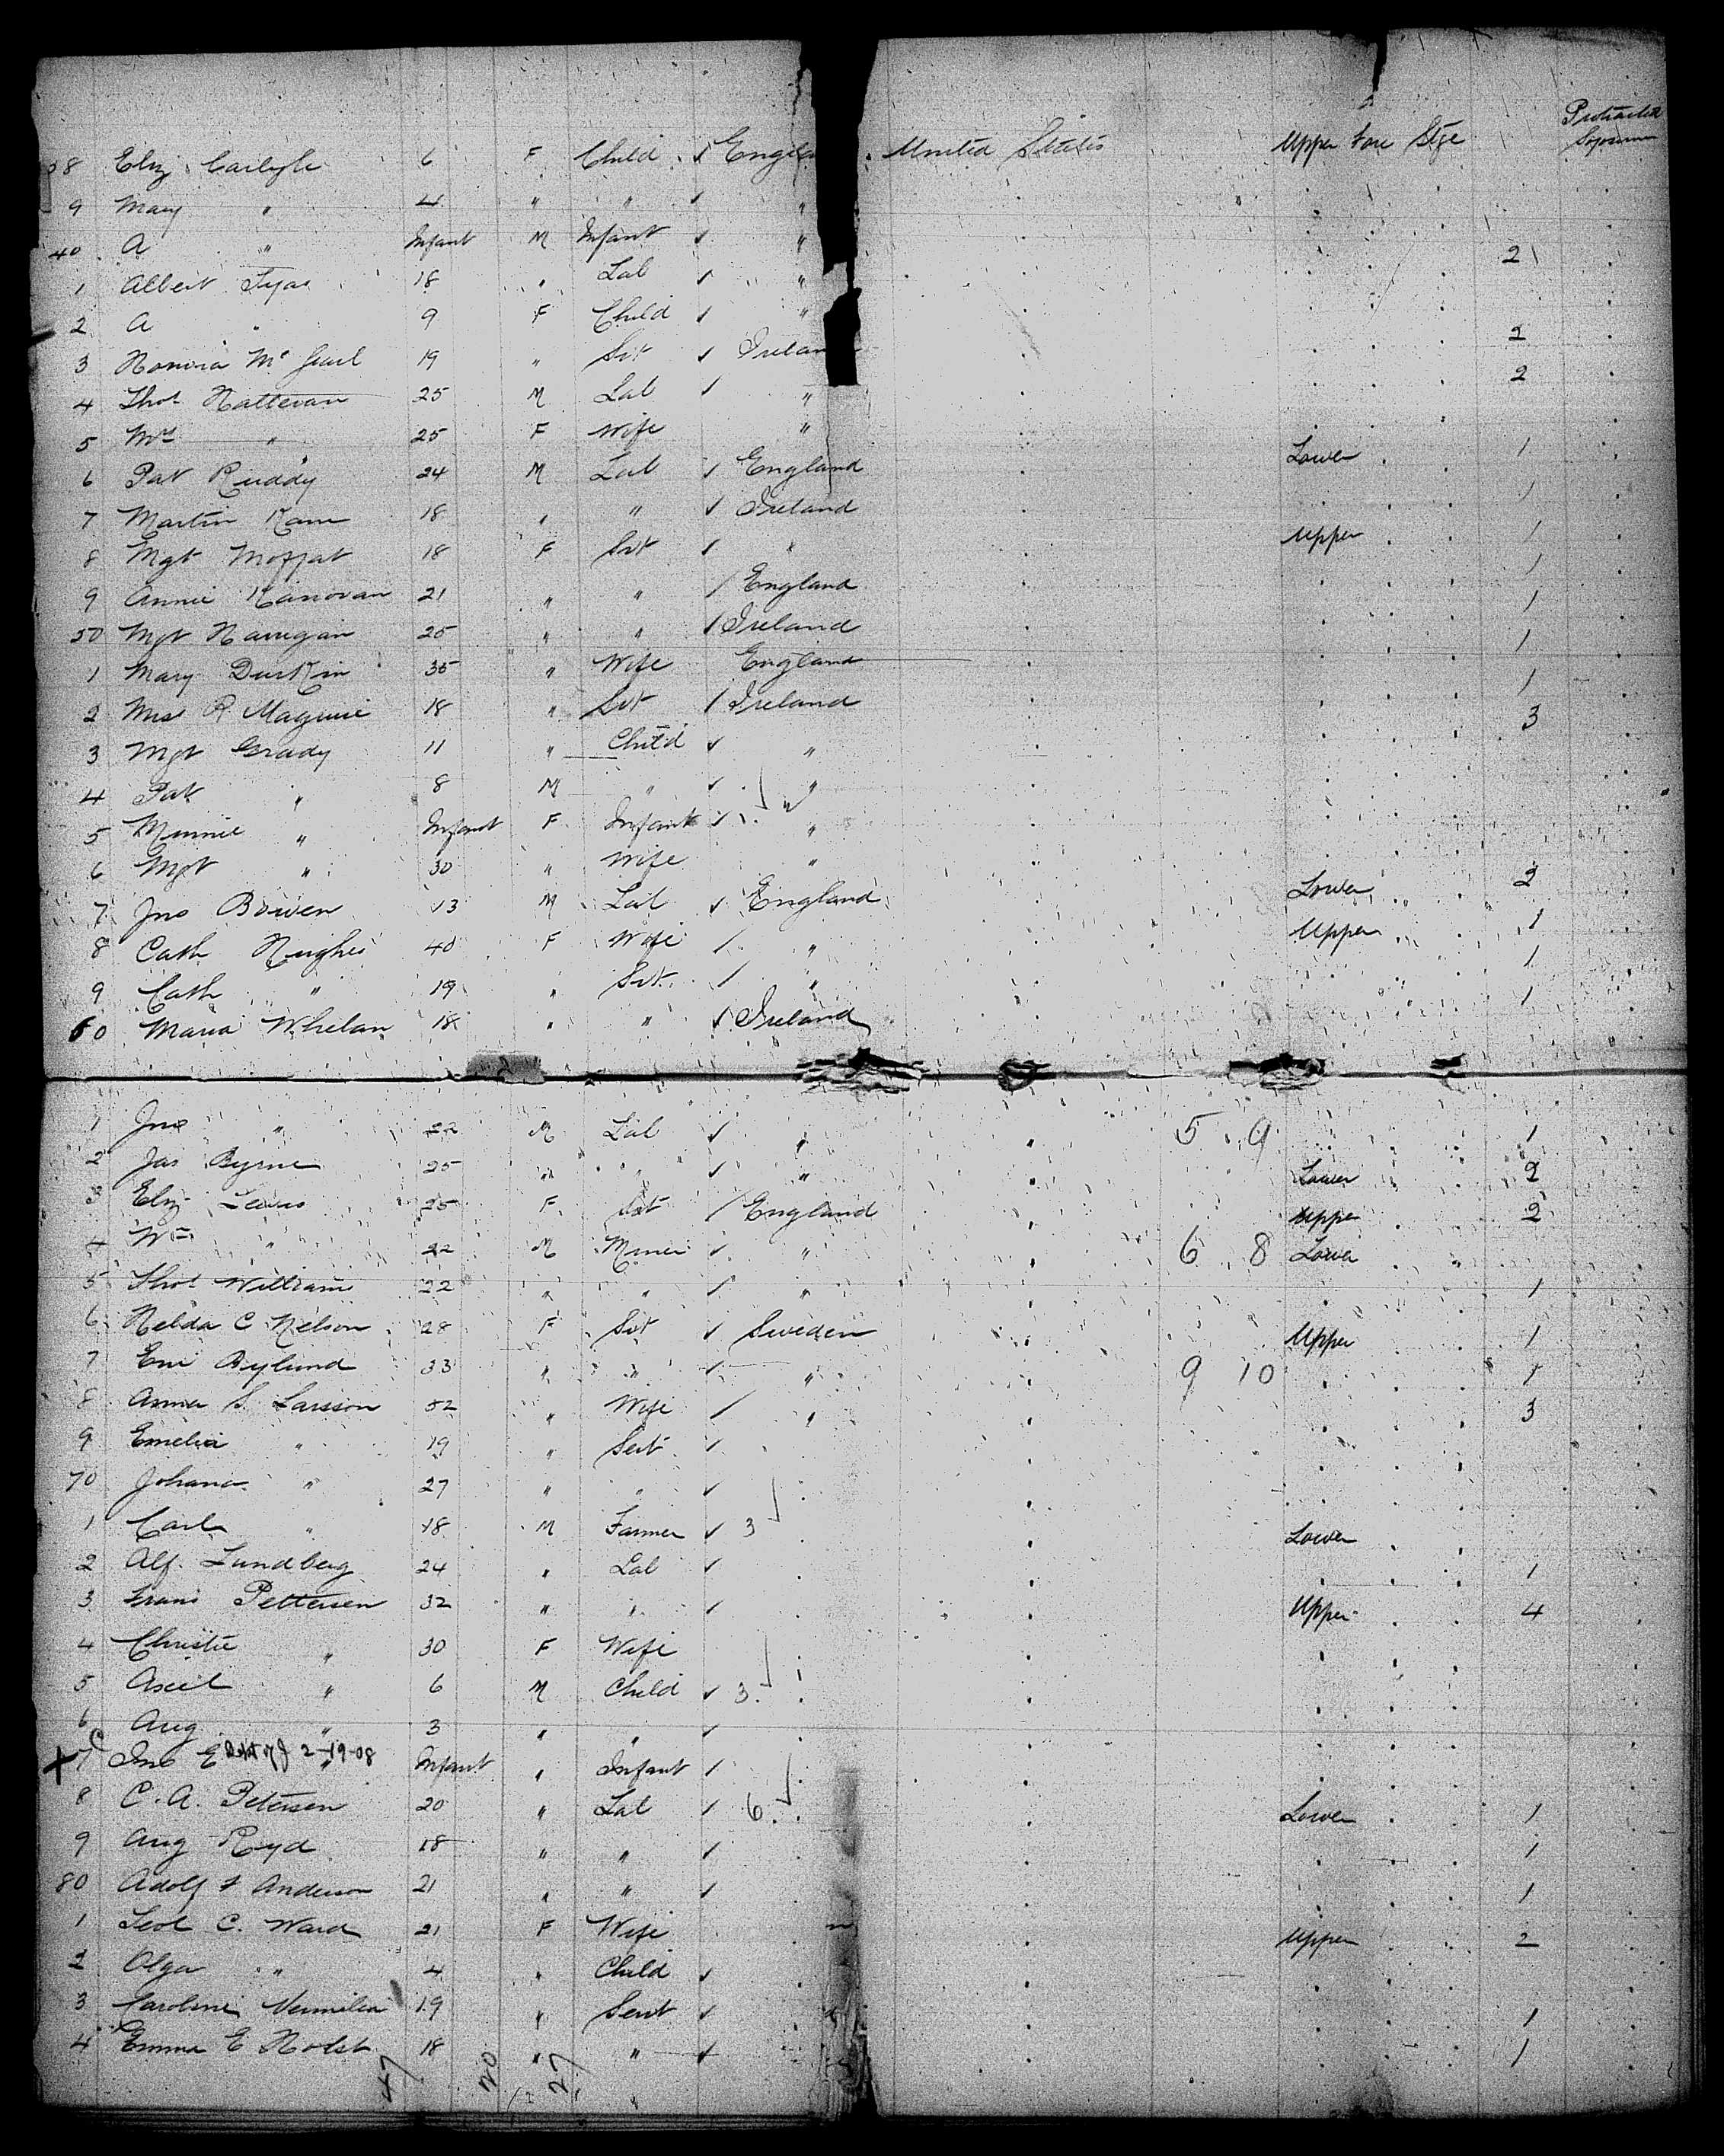 Protracted
38 Eliz Carlyle 6 F Child ✓ Engla United States Upper Fore Stge Sojourn
9 Mary " 4 " " ✓ "
40 A " Infant M Infant ✓ "
1 Albert Tyas 18 " Lab ✓ " 2
2 A " 9 F Child ✓ "
3 Honora Mc 19 " Svt ✓ Irelan 2
4 Thos Hatteran 25 M Lab ✓ " 2
5 Mrs " 25 F Wife "
6 Pat Ruddy 24 M Lab ✓ England Lower 1
7 Martin Kane 18 " " ✓ Ireland 1
8 Mgt Moffat 18 F Svt ✓ " Upper 1
9 Annie Kanovan 21 " " ✓ England 1
50 Mgt Harrigan 25 " " ✓ Ireland 1
1 Mary Durkin 35 " Wife England 1
2 Mrs R Maguire 18 " Svt ✓ Ireland 1
3 Mgt Grady 11 " Child ✓ " 3
4 Pat " 8 M " ✓ "
5 Minnie " Infant F Infant ✓ "
6 Mgt " 30 " Wife "
7 Jno Bowen 13 M Lab ✓ England Lower 2
8 Cath Hughes 40 F Wife ✓ " Upper 1
9 Cath " 19 " Svt ✓ " 1
60 Maria Whelan 18 " " ✓ Ireland 1
1 Jno " 22 M Lab ✓ " 5 9 1
2 Jas Byrne 25 " " ✓ " Lower 2
3 Eliz Lewis 25 F Svt ✓ England Upper 2
4 Wm " 22 M Miner ✓ " 6 8 Lower "
5 Thos Williams 22 " " ✓ " 1
6 Helda C Nelson 28 F Svt ✓ Sweden Upper 1
7 Em Bylund 33 " " ✓ " 9 10 1
8 Anna S. Larsson 52 " Wife ✓ " 3
9 Emelia " 19 " Sevt ✓
70 Johana " 27 " " ✓
1 Carl " 18 M Farmer ✓ 3 Lower
2 Alf. Lundberg 24 " Lab ✓ 1
3 Frans Pettersen 32 " " ✓ Upper 4
4 Christie " 30 F Wife
5 Axel " 6 M Child ✓ 3
6 Aug " 3 " " ✓
X 7 Jno E 2-19-08 " Infant " Infant ✓
8 C. A. Petersen 20 " Lab ✓ 6 Lower 1
9 Aug Ryd 18 " " ✓ 1
80 Adolf F Anderson 21 " " ✓ 1
1 C. Ward 21 F Wife Upper 2
2 Olga " 4 " Child ✓
3 Caroline 19 " Sevt ✓ 1
4 Emma E Holst 18 " " ✓ 1
47 20 27